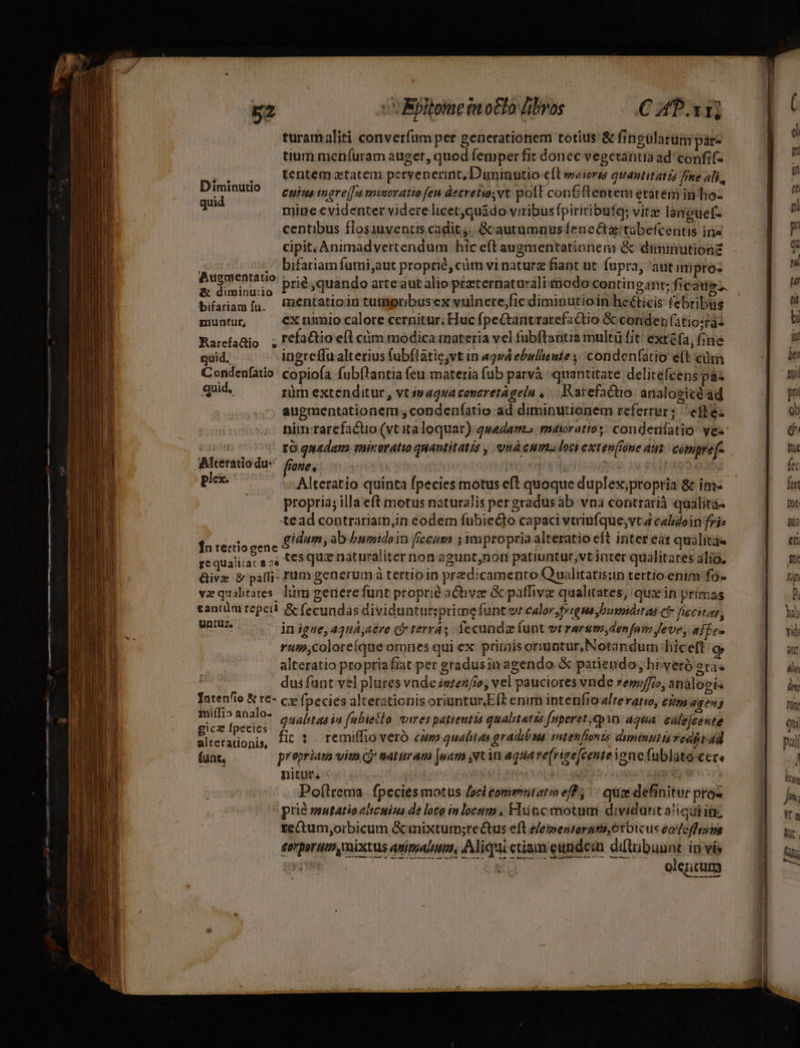 52 Epitome in octo libros CAP. XI;
turam aliti conversum per generationem totius & singularum par-
tium mensuram auget, quod semper fit donec vegetantia ad consis-
tentem ætatem pervenerint, Diminutio est maioris quantitatis sine ali-
Diminutio quid
cuius ingressu minoratio seu decretio; vt post consistentem etatem in ho-
mine evidenter videre licet, quãdo viribus spiritibusq; vitæ langues-
centibus flos iuventis cadit, & autumnus senectæ tabescentis in-
cipit. Animadvertendum hic est augmentationem & diminutionẽ
bifariam sumi, aut propriè, cùm vi naturæ fiant ut supra, aut impro-
Augmentatio & diminutio bifariam su- muntur,
priè, quando arte aut alio præternaturali modo contingant; sic aug-
mentatio in tumoribus ex vulnere, sic diminutio in hecticis febribus
ex nimio calore cernitur. Huc spectant rarefactio & condensatio; ra-
Rarefactio quid.
refactio est cùm modica materia vel substantia multũ sit extẽsa, sine
ingressu alterius substãtie, vt in aquâ ebulliente; condensatio est cùm
Condensatio quid,
copiosa substantia seu materia sub parvâ quantitate delitescens pa-
rùm extenditur, vt in aqua concretâ gelu. Rarefactio analogicè ad
augmentationem, condensatio ad diminutionem referrur; est e-
nim rarefactio (vt ita loquar) quædam maioratio; condensatio ve-
rò quædam minoratio quantitatis, unà cum loci extensione aut compres-
Alteratio du- plex.
sione.
Alteratio quinta species motus est quoque duplex, propria & im-
propria; illa est motus naturalis per gradus ab vna contrariâ qualita-
te ad contrariam, in eodem subiecto capaci vtriusque, vt à calido in fri-
gidum, ab humido in siccum; impropria alteratio est inter eas qualita-
In tertio gene re qualitat & activæ & passi- væ qualitates tantùm repeti untur.
tes quæ naturaliter non agunt, non patiuntur, vt inter qualitates alio-
rum generum à tertio in prædicamento Qualitatis: in tertio enim so-
lùm genere sunt propriè activæ & passivæ qualitates, quæ in primas
& secundas dividuntur: primæ sunt vt calor, frigus, humiditas & siccitas,
in igne, aquâ, aëre & terrâ; secundæ sunt vt rarum, densum, leve, aspe-
rum, coloresque omnes qui ex primis oriuntur. Notandum hic est q̃
alteratio propria fiat per gradus in agendo & patiendo, hi verò gra-
dus sunt vel plures vnde intensio, vel pauciores vnde remissio, analogi-
Intensio & re- missio analo- gicæ species alterationis, sunt,
cæ species alterationis oriuntur. Est enim intensio alteratio, cùm agens
qualitas in subiecto vires patientis qualitatis superet, qn in aqua calescente
fit: remissio verò cùm qualitas gradibus intensionis diminutis redit ad
propriam vim & naturam suam, vt in aqua refrigescente igne sublato cer-
nitur.
Postrema species motus loci commutatio est; quæ definitur pro-
priè mutatio alicuius de loco in locum. Hunc motum dividunt aliqui in,
rectum, orbicum & mixtum; rectus est elementorum, orbicus cœlestium
corporum, mixtus animalium. Aliqui etiam eundem distribuunt in vis
olentum